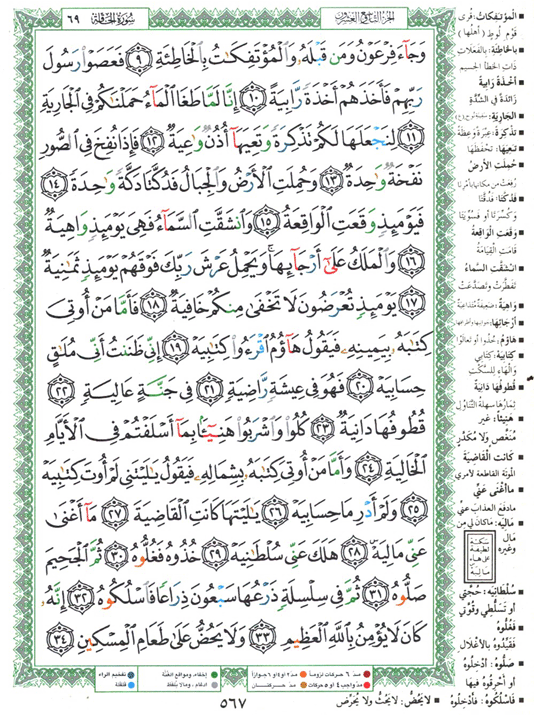 سُورَةُ الْحَاقَّةِ ٦٩
الجزء التاسع والعشرون
وَجَآءَ فِرْعَوْنُ وَمَن قَبْلَهُۥ وَٱلْمُؤْتَفِكَٰتُ بِٱلْخَاطِئَةِ ﴿٩﴾ فَعَصَوْا۟ رَسُولَ
رَبِّهِمْ فَأَخَذَهُمْ أَخْذَةً رَّابِيَةً ﴿١٠﴾ إِنَّا لَمَّا طَغَا ٱلْمَآءُ حَمَلْنَٰكُمْ فِى ٱلْجَارِيَةِ
﴿١١﴾ لِنَجْعَلَهَا لَكُمْ تَذْكِرَةً وَتَعِيَهَآ أُذُنٌ وَٰعِيَةٌ ﴿١٢﴾ فَإِذَا نُفِخَ فِى ٱلصُّورِ
نَفْخَةٌ وَٰحِدَةٌ ﴿١٣﴾ وَحُمِلَتِ ٱلْأَرْضُ وَٱلْجِبَالُ فَدُكَّتَا دَكَّةً وَٰحِدَةً ﴿١٤﴾
فَيَوْمَئِذٍ وَقَعَتِ ٱلْوَاقِعَةُ ﴿١٥﴾ وَٱنشَقَّتِ ٱلسَّمَآءُ فَهِىَ يَوْمَئِذٍ وَاهِيَةٌ
﴿١٦﴾ وَٱلْمَلَكُ عَلَىٰٓ أَرْجَآئِهَا ۚ وَيَحْمِلُ عَرْشَ رَبِّكَ فَوْقَهُمْ يَوْمَئِذٍ ثَمَٰنِيَةٌ
﴿١٧﴾ يَوْمَئِذٍ تُعْرَضُونَ لَا تَخْفَىٰ مِنكُمْ خَافِيَةٌ ﴿١٨﴾ فَأَمَّا مَنْ أُوتِىَ
كِتَٰبَهُۥ بِيَمِينِهِۦ فَيَقُولُ هَآؤُمُ ٱقْرَءُوا۟ كِتَٰبِيَهْ ﴿١٩﴾ إِنِّى ظَنَنتُ أَنِّى مُلَٰقٍ
حِسَابِيَهْ ﴿٢٠﴾ فَهُوَ فِى عِيشَةٍ رَّاضِيَةٍ ﴿٢١﴾ فِى جَنَّةٍ عَالِيَةٍ ﴿٢٢﴾
قُطُوفُهَا دَانِيَةٌ ﴿٢٣﴾ كُلُوا۟ وَٱشْرَبُوا۟ هَنِيٓـًٔۢا بِمَآ أَسْلَفْتُمْ فِى ٱلْأَيَّامِ
ٱلْخَالِيَةِ ﴿٢٤﴾ وَأَمَّا مَنْ أُوتِىَ كِتَٰبَهُۥ بِشِمَالِهِۦ فَيَقُولُ يَٰلَيْتَنِى لَمْ أُوتَ كِتَٰبِيَهْ
﴿٢٥﴾ وَلَمْ أَدْرِ مَا حِسَابِيَهْ ﴿٢٦﴾ يَٰلَيْتَهَا كَانَتِ ٱلْقَاضِيَةَ ﴿٢٧﴾ مَآ أَغْنَىٰ
عَنِّى مَالِيَهْ ﴿٢٨﴾ هَلَكَ عَنِّى سُلْطَٰنِيَهْ ﴿٢٩﴾ خُذُوهُ فَغُلُّوهُ ﴿٣٠﴾ ثُمَّ ٱلْجَحِيمَ
صَلُّوهُ ﴿٣١﴾ ثُمَّ فِى سِلْسِلَةٍ ذَرْعُهَا سَبْعُونَ ذِرَاعًا فَٱسْلُكُوهُ ﴿٣٢﴾ إِنَّهُۥ
كَانَ لَا يُؤْمِنُ بِٱللَّهِ ٱلْعَظِيمِ ﴿٣٣﴾ وَلَا يَحُضُّ عَلَىٰ طَعَامِ ٱلْمِسْكِينِ ﴿٣٤﴾
■ الْمُؤْتَفِكَاتُ: قُرَى
قَوْمِ لُوطٍ (أهلُها)
■ بِالْخَاطِئَةِ: بِالفَعَلَاتِ
ذَاتِ الخَطَأِ الجَسِيمِ
■ أَخْذَةً رَابِيَةً
زَائِدَةً فِي الشِّدَّةِ
■ الجَارِيَةِ:
■ تَذْكِرَةً: عِبْرَةً وَعِظَةً
■ تَعِيَهَا: تَحْفَظَهَا
■ حُمِلَتِ الأَرْضُ
رُفِعَتْ مِنْ مَكَانِهَا بِأَمْرِنَا
■ فَدُكَّتَا: فَدُقَّتَا
وَكُسِّرَتَا أَوْ فَسُوِّيَتَا
■ وَقَعَتِ الوَاقِعَةُ
قَامَتِ القِيَامَةُ
■ انْشَقَّتِ السَّمَاءُ
تَفَطَّرَتْ وَتَصَدَّعَتْ
■ وَاهِيَةٌ: ضَعِيفَةٌ مُتَدَاعِيَةٌ
■ أَرْجَائِهَا: جوانبها وأطرافها
■ هَاؤُمُ: خُذُوا أَوْ تَعَالَوْا
■ كِتَابِيَهْ: كِتَابِي
وَالْهَاءُ لِلسَّكْتِ
■ قُطُوفُهَا دَانِيَةٌ
ثِمَارُهَا سَهْلَةُ التَّنَاوُلِ
■ هَنِيئًا: غَيْرَ
مُنَغَّصٍ وَلَا مُكَدَّرٍ
■ كَانَتِ القَاضِيَةَ
المَوْتَةَ القَاطِعَةَ لِأَمْرِي
■ مَا أَغْنَى عَنِّي
مَا دَفَعَ العَذَابَ عَنِّي
■ مَالِيَهْ: مَا كَانَ لِي مِنْ
مَالٍ
وَغَيْرِهِ
سكتة
لطيفة
على هاء
مَالِيَهْ
■ سُلْطَانِيَهْ: حُجَّتِي
أَوْ تَسَلُّطِي وَقُوَّتِي
■ فَغُلُّوهُ
فَقَيِّدُوهُ بِالأَغْلَالِ
■ صَلُّوهُ: أَدْخِلُوهُ
أَوْ أَحْرِقُوهُ فِيهَا
■ فَاسْلُكُوهُ: فَأَدْخِلُوهُ ■ لَا يَحُضُّ: لَا يَحُثُّ وَلَا يُحَرِّضُ
مدّ ٦ حركات لزوماً مدّ ٢ أو ٤ أو ٦ جوازاً إخفاء، ومواقع الغُنَّة تفخيم الراء
مدّ واجب ٤ أو ٥ حركات مدّ حركتان إدغام، وما لا يُلفَظ قلقلة
٥٦٧